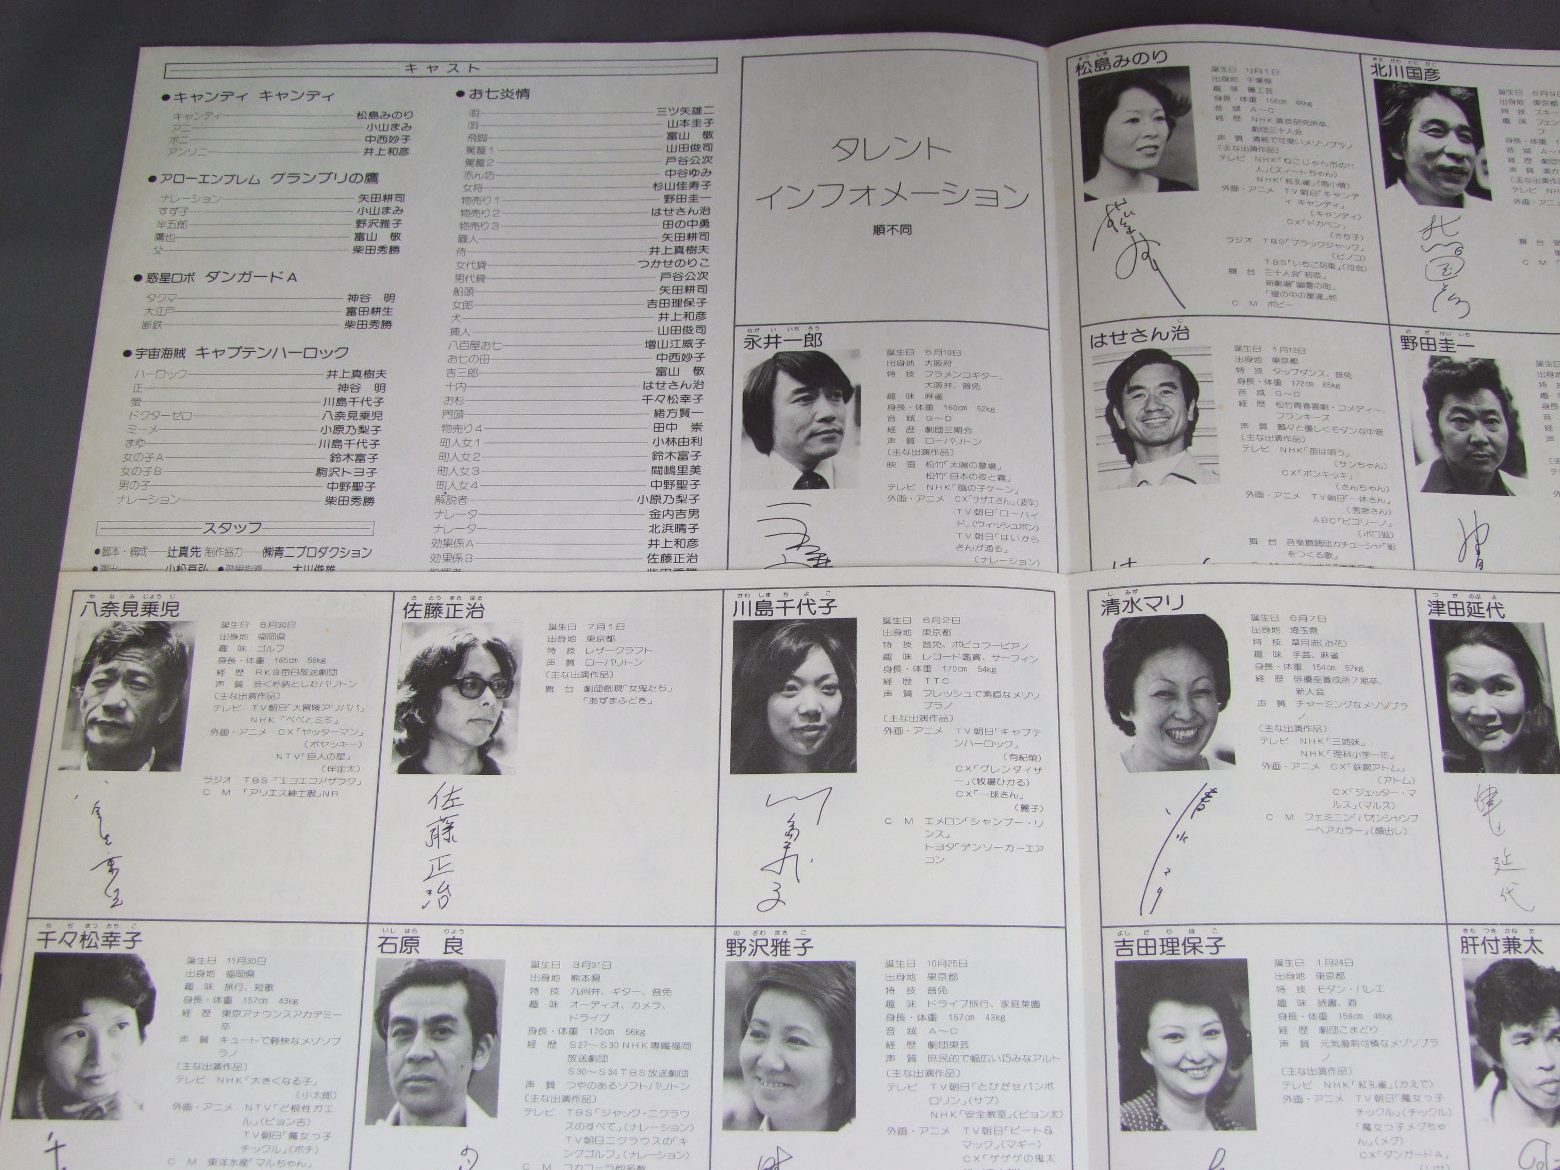 キャスト
●キャンディ キャンディ
キャンディ 松島みのり
アニー 小山まみ
ポニー 中西妙子
アンソニー 井上和彦
●アローエンブレム グランプリの鷹
ナレーション 矢田耕司
すず子 小山まみ
半五郎 野沢雅子
鷹也 富山 敬
父 柴田秀勝
●惑星ロボ ダンガードA
タクマ 神谷 明
大江戸 富田耕生
断鉄 柴田秀勝
●宇宙海賊 キャプテンハーロック
ハーロック 井上真樹夫
正 神谷 明
螢 川島千代子
ドクターゼロ 八奈見乗児
ミーメ 小原乃梨子
まゆ 川島千代子
女の子A 鈴木富子
女の子B 駒沢トヨ子
男の子 中野聖子
ナレーション 柴田秀勝
スタッフ
●脚本・構成 辻真先 制作協力 ㈱青二プロダクション
●お七炎情
唄 三ツ矢雄二
唄 山本圭子
飛脚 富山 敬
駕籠1 山田俊司
駕籠2 戸谷公次
赤ん坊 中谷ゆみ
女将 杉山佳寿子
物売り1 野田圭一
物売り2 はせさん治
物売り3 田の中勇
職人 矢田耕司
侍 井上真樹夫
女代貸 つかせのりこ
男代貸 戸谷公次
船頭 矢田耕司
女郎 吉田理保子
犬 井上和彦
捕人 山田俊司
八百屋お七 増山江威子
お七の母 中西妙子
吉三郎 富山 敬
十内 はせさん治
お杉 千々松幸子
門頭 緒方賢一
物売り4 田中 崇
町人女1 小林由利
町人女2 鈴木富子
町人女3 間嶋里美
町人女4 中野聖子
解説者 小原乃梨子
ナレーター 金内吉男
ナレーター 北浜晴子
効果係A 井上和彦
効果係B 佐藤正治
タレント
インフォメーション
順不同
松島みのり
誕生日 12月1日
出身地 千葉県
趣味 籐工芸
身長・体重 156㎝ 46㎏
音域 A〜C
経歴 NHK演技研究所卒、
劇団三十人会
声質 清純で可愛いメゾソプラノ
〔主な出演作品〕
テレビ NHK「ねこじゃら市の11
人」(スィートちゃん)
NHK「紅孔雀」(雨小僧)
外画・アニメ TV朝日「キャンデ
ィ キャンディ」
(キャンディ)
CX「ドカベン」
(さち子)
ラジオ TBS「ブラックジャック」
(ピノコ)
TBS「いちご列車」(司会)
舞台 三十人会「初恋」
CM ポピー
北川国彦
永井一郎
誕生日 5月10日
出身地 大阪府
特技 フラメンコギター、
大阪弁、普免
趣味 麻雀
身長・体重 160㎝ 52㎏
音域 G〜D
経歴 劇団三期会
声質 ローバリトン
〔主な出演作品〕
映画 松竹「太陽の墓場」
松竹「日本の夜と霧」
テレビ NHK「風の子ケーン」
外画・アニメ CX「サザエさん」(波平)
TV朝日「ローハイ
ド」(ウィッシュボン)
TV朝日「はいから
さんが通る」
(ナレーション)
はせさん治
誕生日 1月12日
出身地 東京都
特技 タップダンス、普免
身長・体重 172㎝ 65㎏
音域 G〜D
経歴 松竹青春喜劇・コメディー、
フランキーズ
声質 飄々と優しくモダンな中音
〔主な出演作品〕
テレビ NHK「風は唄う」
(サンちゃん)
CX「ポンキッキ」
(さんちゃん)
外画・アニメ TV朝日「一休さん」
(秀念さん)
ABC「ピコリーノ」
野田圭一
八奈見乗児
誕生日 8月30日
出身地 福岡県
趣味 ゴルフ
身長・体重 165㎝ 58㎏
経歴 RKB毎日放送劇団
声質 渋く朴訥としたバリトン
〔主な出演作品〕
テレビ TV朝日「大冒険アリババ」
NHK「ペペとミミ」
外画・アニメ CX「ヤッターマン」
(ボヤッキー)
NTV「巨人の星」
(伴宙太)
ラジオ TBS「エコエコアザラク」
CM 「アリエス紳士服」NR
佐藤正治
誕生日 7月1日
出身地 東京都
特技 レザークラフト
声質 ローバリトン
〔主な出演作品〕
舞台 劇団創現「女鬼たち」
「あずまふどき」
佐藤正治
川島千代子
誕生日 6月2日
出身地 東京都
特技 普免、ポピュラーピアノ
趣味 レコード鑑賞、サーフィン
身長・体重 170㎝ 54㎏
経歴 TTC
声質 フレッシュで素直なメゾソ
プラノ
〔主な出演作品〕
外画・アニメ TV朝日「キャプテ
ンハーロック」
(有紀螢)
CX「グレンダイザ
ー」(牧場ひかる)
CX「一球さん」
CM エメロン「シャンプー・リ
ンス」
トヨタ「デンソーカーエア
コン
清水マリ
誕生日 6月7日
出身地 埼玉県
特技 草月流(お花)
趣味 手芸、麻雀
身長・体重 154㎝ 57㎏
経歴 俳優座養成所7期卒、
新人会
声質 チャーミングなメゾソプラ
ノ
〔主な出演作品〕
テレビ NHK「三姉妹」
NHK「理科小学一年」
外画・アニメ CX「鉄腕アトム」
(アトム)
CX「ジェッター・マ
ルス」(マルス)
CM フェミニン「パオンシャンプ
ーヘアカラー」(顔出し)
津田延代
千々松幸子
誕生日 11月30日
出身地 福岡県
趣味 旅行、短歌
身長・体重 157㎝ 43㎏
経歴 東京アナウンスアカデミー
卒
声質 キュートで軽快なメゾソプ
ラノ
〔主な出演作品〕
テレビ NHK「大きくなる子」
(小太郎)
外画・アニメ NTV「ど根性ガエ
ル」(ピョン吉)
TV朝日「魔女っ子
チックル」(ポチ)
CM 東洋水産「マルちゃん」
石原 良
誕生日 3月31日
出身地 熊本県
特技 九州弁、ギター、普免
趣味 オーディオ、カメラ、
ドライブ
身長・体重 170㎝ 56㎏
経歴 S27〜S30 NHK専属福岡
放送劇団
S30〜S34 TBS放送劇団
声質 つやのあるソフトバリトン
〔主な出演作品〕
テレビ TBS「ジャック・ニクラウ
スのすべて」(ナレーション)
TV朝日ニクラウスの「キ
ングゴルフ」(ナレーション)
CM コカコーラ他多数
野沢雅子
誕生日 10月25日
出身地 東京都
特技 普免
趣味 ドライブ旅行、家庭菜園
身長・体重 157㎝ 43㎏
音域 A〜C
経歴 劇団東芸
声質 庶民的で幅広い巧みなアルト
〔主な出演作品〕
テレビ TV朝日「とびだせパンポ
ロリン」(サブ)
NHK「安全教室」(ピョン太)
外画・アニメ TV朝日「ピート&
マック」(マギー)
CX「ゲゲゲの鬼太
吉田理保子
誕生日 1月24日
出身地 東京都
特技 モダン・バレエ
趣味 読書、酒
身長・体重 158㎝ 48㎏
経歴 劇団こまどり
声質 元気溌剌可憐なメゾソプラ
ノ
〔主な出演作品〕
テレビ NHK「紅孔雀」(かえで)
外画・アニメ TV朝日「魔女っ子
チックル」(チックル)
「魔女っ子メグちゃ
ん」(メグ)
CX「ダンガードA」
肝付兼太